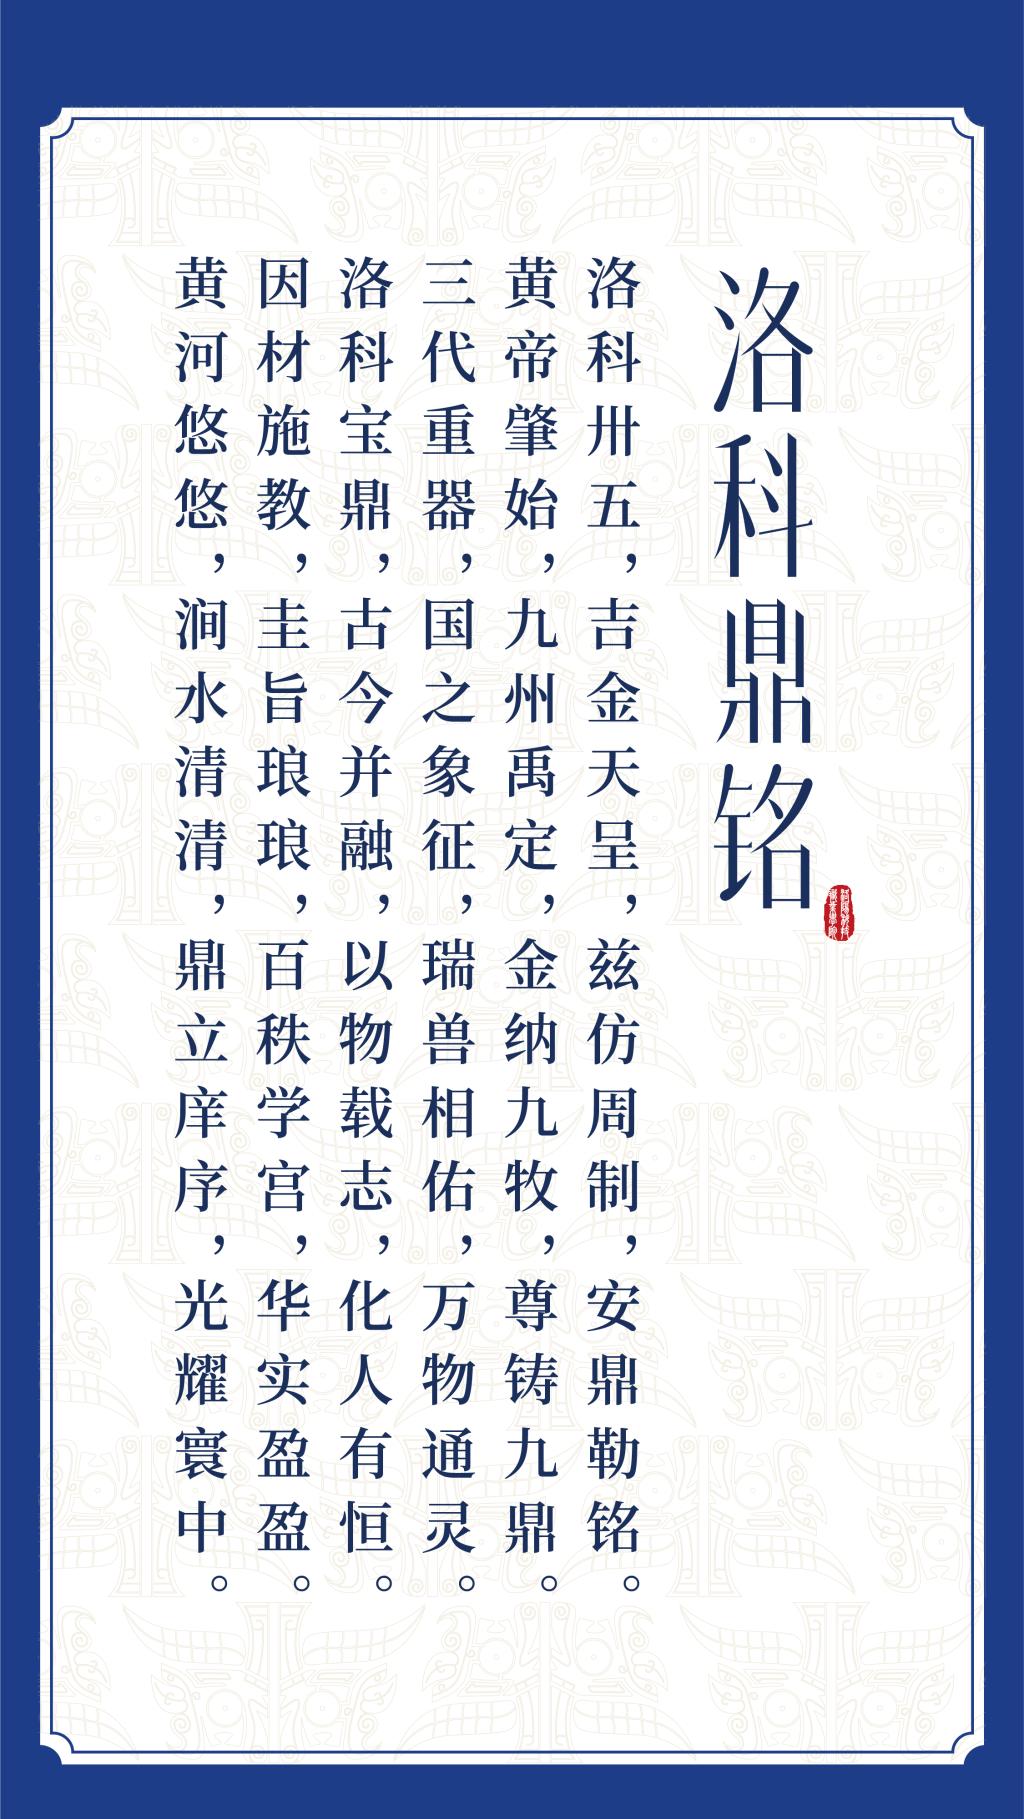 洛科鼎铭
洛科卅五，吉金天呈，兹仿周制，安鼎勒铭。
黄帝肇始，九州禹定，金纳九牧，尊铸九鼎。
三代重器，国之象征，瑞兽相佑，万物通灵。
洛科宝鼎，古今并融，以物载志，化人有恒。
因材施教，圭旨琅琅，百秩学宫，华实盈盈。
黄河悠悠，涧水清清，鼎立庠序，光耀寰中。